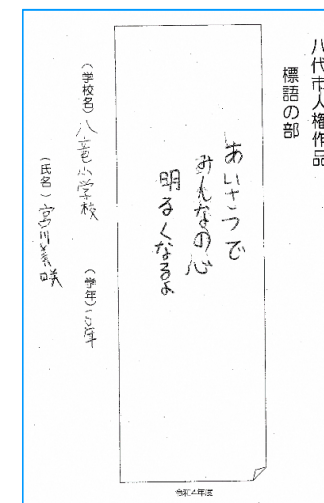 八代市人権作品
標語の部
あいさつで
みんなの心
明るくなるよ
(学校名)八竜小学校
(学年)
(氏名)宮川
令和4年度